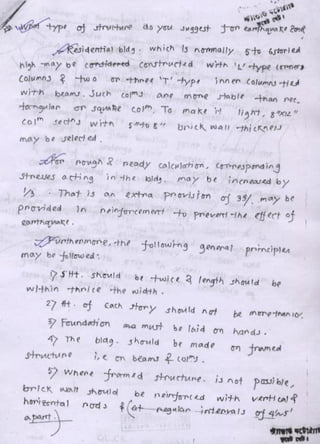 What type of structure do you suggest for earthquake zone
Residential bldg. which is normally 5 to 6 storied
high may be considered constructed with 'L'-type corner
columns & two or three 'T' type inner columns tied
with beams. Such colms are more stable than rec-
tangular or square colm. To make it light, 8"x12"
colm sectns with 5" to 8" brick wall thickness
may be selected.
For rough & ready calculation, corresponding
stresses acting in the bldg. may be increased by
1/3. That is an extra provision of 33/. may be
provided in reinforcement to prevent the effect of
earthquake.
Furthermore, the following general principles
may be followed:
1) Ht. should be twice & length should be
within thrice the width.
2) Ht. of each story should not be more than 10'.
3) Foundation must be laid on hands.
4) The bldg. should be made on framed
structure i.e on beams & colms.
5) Where framed structure. is not possible,
brick wall should be reinforced with vertical &
horizontal rods & (at regular intervals of
apart.)